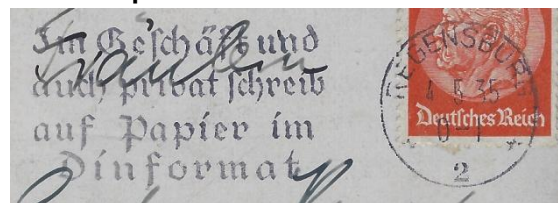 Im Geschäft und
auch privat schreib
auf Papier im
Dinformat
Fräulein
REGENSBURG
4.5.35
2
Deutsches Reich